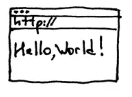 http://
Hello, World!